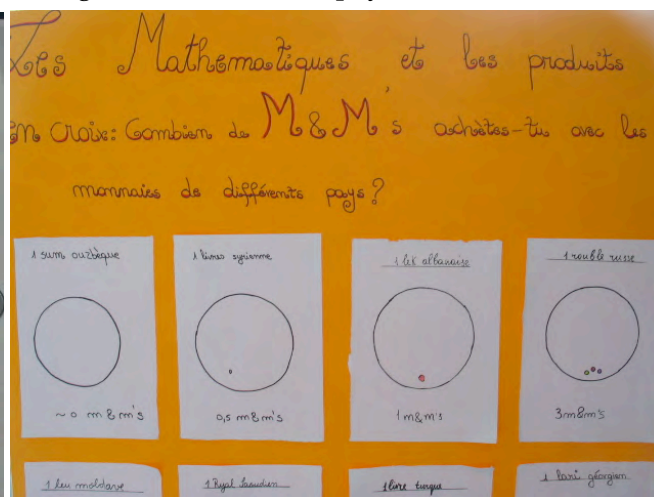 Les Mathématiques et les produits
en croix: Combien de M&M's achètes-tu avec les
monnaies de différents pays?
1 sum ouzbèque
1 livres syrienne
1 lek albanaise
1 rouble russe
~0 m&m's
0,5 m&m's
1 m&m's
3 m&m's
1 leu moldave
1 Ryal Saoudien
1 livre turque
1 lari géorgien